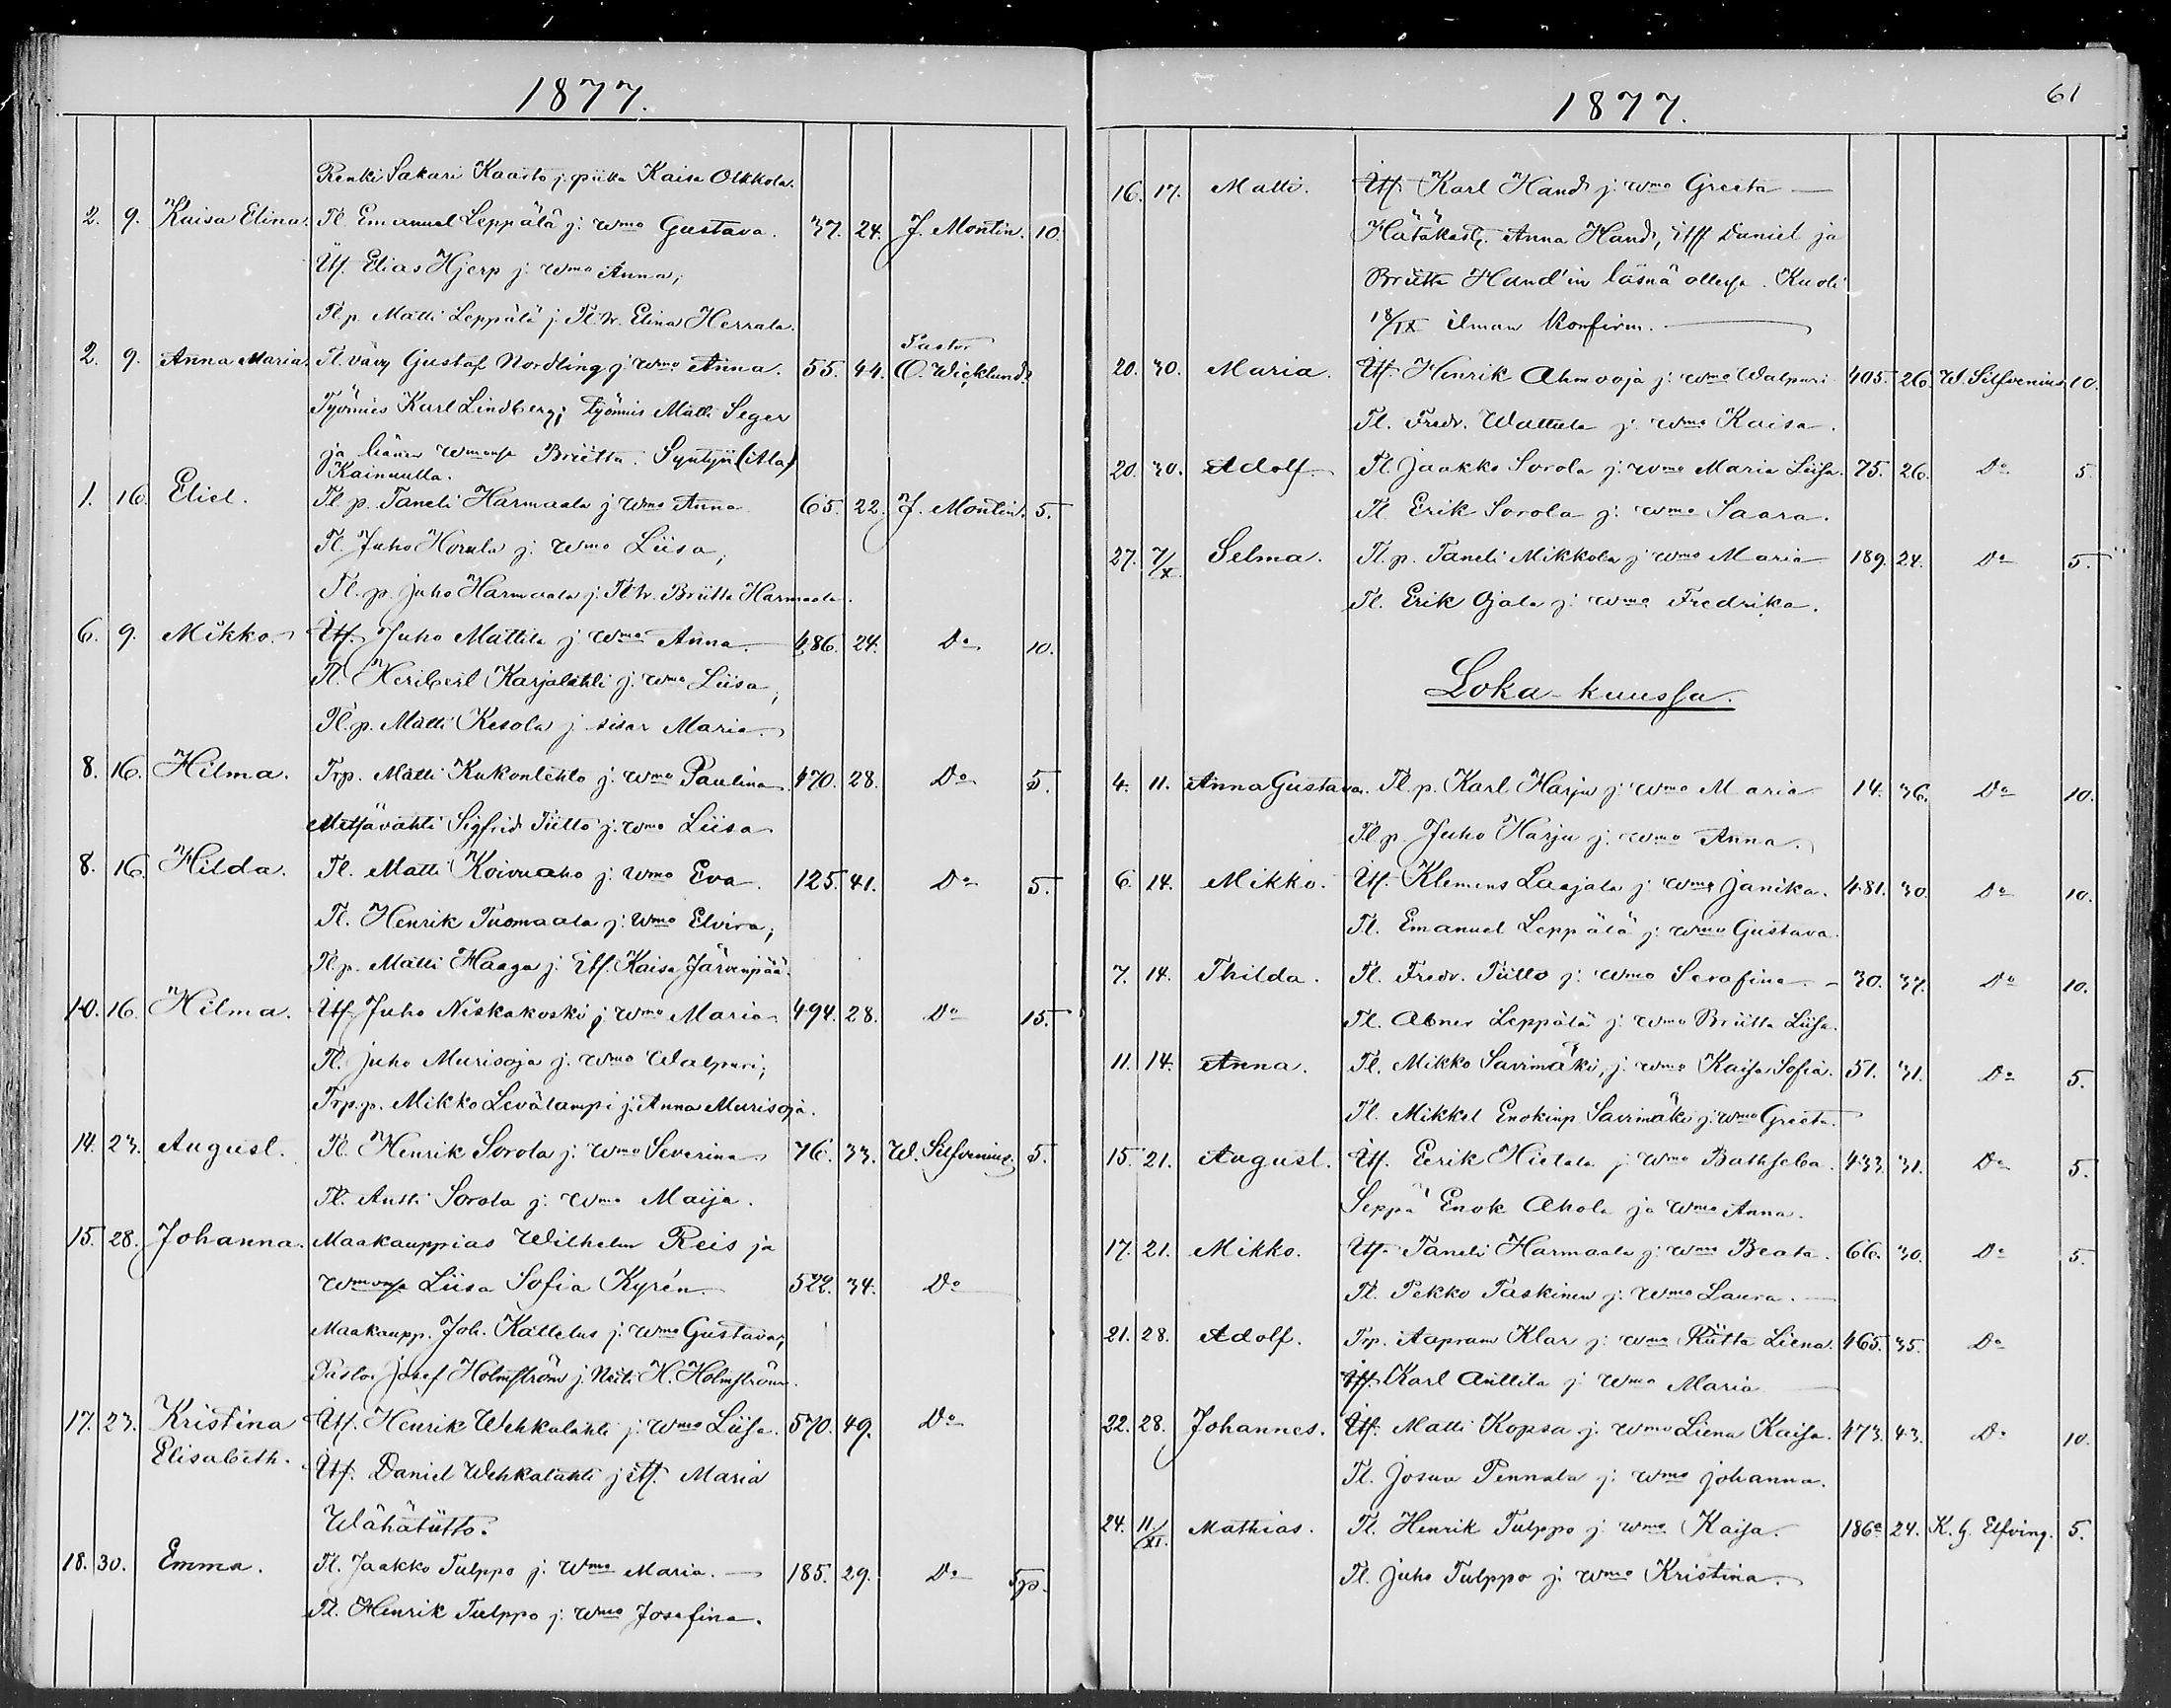 1877.
Renki Sakari Kaarto j. piika Kaisa Olkkola.
2. 9. Kaisa Elina. Tl. Emanuel Leppälä j. Wmo Gustava. 37. 24. J. Montin. 10.
Itf. Elias Hjerp j. Wmo Anna,
Tl. p. Matti Leppälä j. Tl. tr. Elina Herrala.
Pastor
2. 9. Anna Maria. Tl. vävy Gustaf Nordling j. Wmo Anna. 55. 44. O. Wicklund.
Työmies Karl Lindberg; Työmies Matti Seger
ja hänen Wmonsa Briitta. Syntyi
Kainuulla.
1. 16. Eliel. Tl. p. Taneli Harmaala j. Wmo Anna 65. 22. J. Montin. 5.
Tl. Juho Horula j. Wmo Liisa,
Tl. p. Juho Harmaala j. Tl. tr. Briitta Harmaala.
6. 9. Mikko. Itf. Juho Mattila j. Wmo Anna. 486. 24. Do 10.
Tl. Heribert Karjalahti j. Wmo Liisa,
Tl. p. Matti Kesola j. sisar Maria.
8. 16. Hilma. Trp. Matti Kukonlehto j. Wmo Paulina 470. 28. Do 5.
Metsävahti Sigfrid Tiitto j. Wmo Liisa
8. 16. Hilda. Tl. Matti Koivuaho j. Wmo Eva. 125. 41. Do 5.
Tl. Henrik Tuomaala j. Wmo Elvira,
Tl. p. Matti Haaga j. Itf. Kaisa Järvenpää.
10. 16. Hilma. Itf. Juho Niskakoski j. Wmo Maria 494. 28. Do 15.
Tl. Juho Murisoja j. Wmo Walpuri,
Trp. p. Mikko Levälampi j. Anna Murisoja.
14. 23. August. Tl. Henrik Sorola j. Wmo Severina 76. 33. W. Silfvenius. 5.
Tl. Antti Sorola j. Wmo Maija.
15. 28. Johanna. Maakauppias Wilhelm Reis ja
Wmonsa Liisa Sofia Kyrén 522. 34. Do
Maakaupp. Joh. Kattelus j. Wmo Gustava,
Pastor Josef Holmström j. Neiti H. Holmström.
17. 23. Kristina Itf. Henrik Wehkalahti j. Wmo Liisa. 570. 49. Do
Elisabeth. Itf. Daniel Wehkalahti j. Itf. Maria
Wähätiitto.
18. 30. Emma. Tl. Jaakko Tulppo j. Wmo Maria. 185. 29. Do 5p.
Tl. Henrik Tulppo j. Wmo Josefina.
1877. 61
16. 17. Matti. Itf. Karl Hand j. Wmo Greeta
Hätäkast. Anna Hand, Itff Daniel ja
Briitta Hand'in läsnä ollessa. Kuoli
18/IX ilman Konfirm.
20. 30. Maria. Itf. Henrik Ahmooja j. Wmo Walpuri 405. 26. W. Silfvenius 10.
Tl. Fredr. Wattula j. Wmo Kaisa.
20. 30. Adolf. Tl. Jaakko Sorola j. Wmo Maria Liisa. 75. 26. Do 5.
Tl. Erik Sorola j. Wmo Saara.
27. 7/X. Selma. Tl. p. Taneli Mikkola j. Wmo Maria 189. 24. Do 5.
Tl. Erik Ojala j. Wmo Fredrika.
Loka-kuussa.
4. 11. Anna Gustava. Tl. p. Karl Harju j. Wmo Maria 14. 36. Do 10.
Tl. p. Juho Harju j. Wmo Anna.
6. 14. Mikko. Itf. Klemens Laajala j. Wmo Janika. 481. 30. Do 10.
Tl. Emanuel Leppälä j. Wmo Gustava.
7. 14. Thilda. Tl. Fredr. Tiitto j. Wmo Serafina. 30. 37. Do 10.
Tl. Abner Leppälä j. Wmo Briitta Liisa.
11. 14. Anna. Tl. Mikko Savimäki, j. Wmo Kaisa Sofia. 51. 31. Do 5.
Tl. Mikkel Enokinp. Savimäki j. Wmo Greeta.
15. 21. August. Itf. Eerik Hietala j. Wmo Bathseba. 433. 31. Do 5.
Seppä Enok Ahola ja Wmo Anna.
17. 21. Mikko. Itf. Taneli Harmaala j. Wmo Beata. 66. 30. Do 5.
Tl. Pekko Paskinen j. Wmo Laura.
21. 28. Adolf. Trp. Aapram Klar j. Wmo Riitta Liena. 465. 35. Do
Itf. Karl Anttila j. Wmo Maria
22. 28. Johannes. Itf. Matti Kopsa j. Wmo Liena Kaisa. 473. 43. Do 10.
Tl. Josua Pennala j. Wmo Johanna.
24. 11/XI. Mathias. Tl. Henrik Tulppo j. Wmo Kaisa. 186a 24. K. G. Elfving. 5.
Tl. Juho Tulppo j. Wmo Kristina.